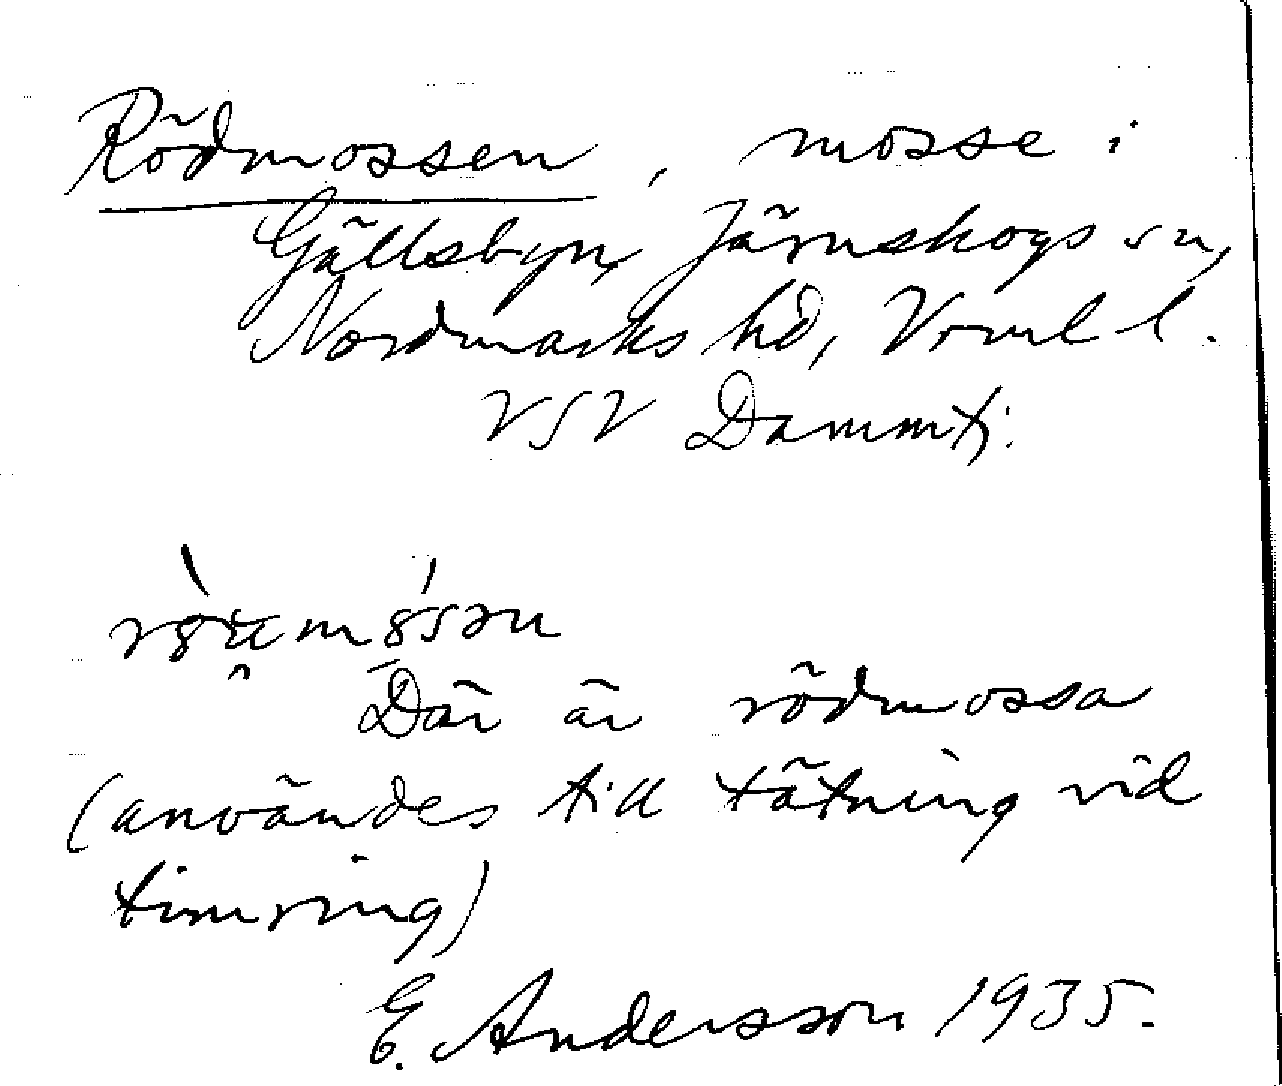 Rödmossen, mosse i
Gällsbyn, Järnskogs sn,
Nordmarks hd, Vrml l.
VSV Dammtj.
Där är rödmossa
(användes till tätning vid
timring)
E. Andersson 1935.